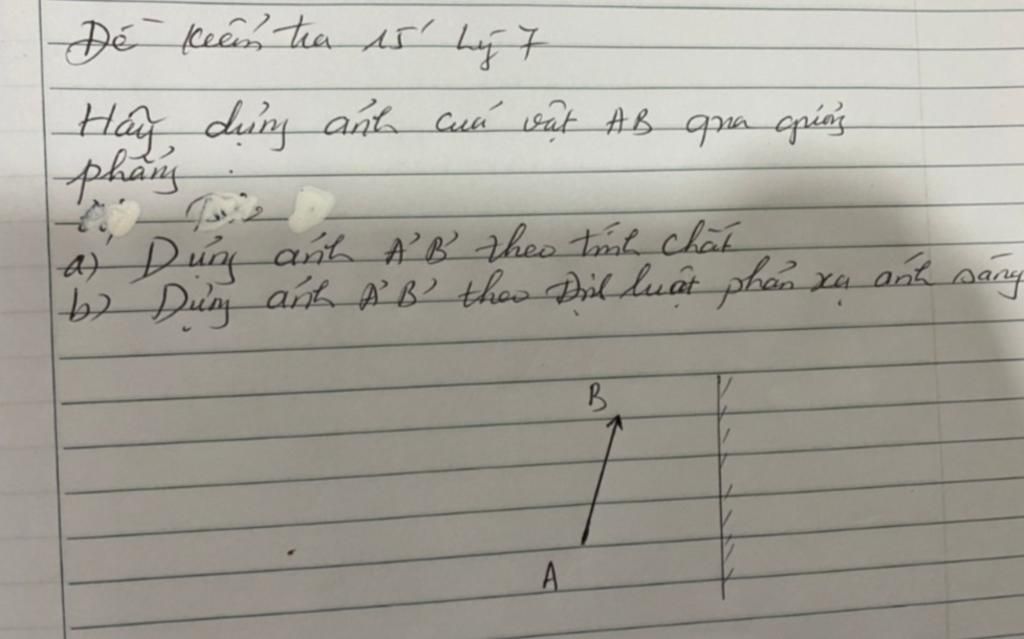 Đề kiểm tra 15' Lý 7
Hãy dựng ảnh của vật AB qua gương
phẳng.
a) Dựng ảnh A'B' theo tính chất
b) Dựng ảnh A'B' theo Định luật phản xạ ánh sáng
B
A